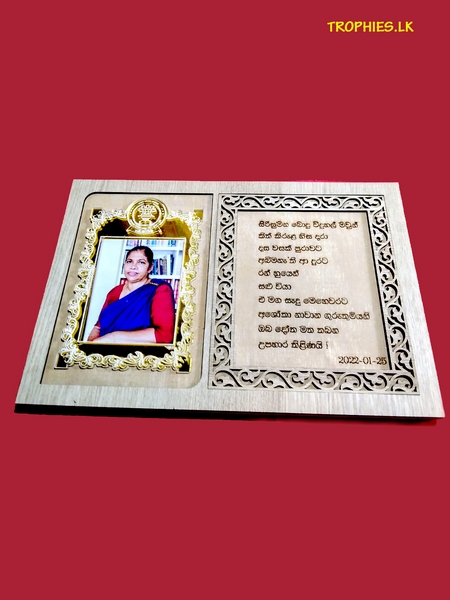 TROPHIES.LK
සිරිලුම්ණ බොදු විදුහල් මවුන්
කිත් කිරුළ හිස දරා
දස වසක් පුරාවට
ආ දුරට
රන් හුයෙන්
සළු විය
ඒ මග සැදූ මෙහෙවරට
අශෝකා නාවාන ගුරුතුමියනි
ඔබ දෝත මත තබන
උපහාර තිළිණයි !
2022-01-25